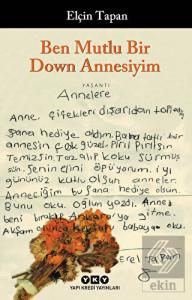 Elçin Tapan
Ben Mutlu Bir
Down Annesiyim
YAŞANTI
Annelere
Anne, çiçekleri dışarıdan
Sana hediye aldım. Bana tatlı bir
annesin çok güzel. Pırıl Pırılsın
Temizsin. Toz alıp koku sürmüş
sün. Senin elini öpüyorum. iyi
gününüz kutlu olsun anneler.
Anneciğim bu sana hediye olsun.
Şunu oku. Oğlun yazdı. Anne
beni bırakıp Ankara'ya gitme.
Akşam olunca babaya
Erel Tapan
YKY
YAPI KREDİ YAYINLARI
ekin